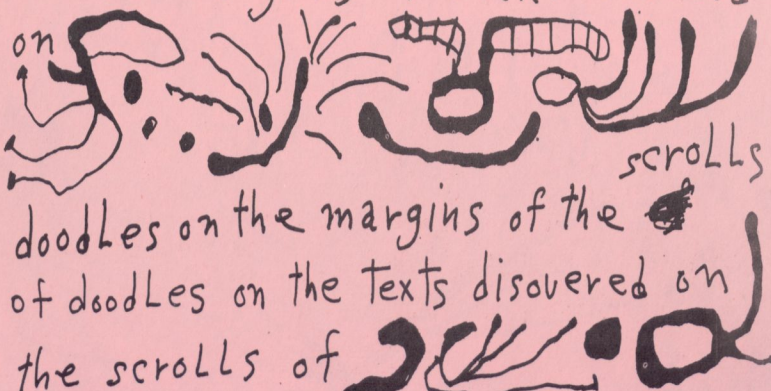 on
scrolls
doodles on the margins of the
of doodles on the texts disovered on
the scrolls of